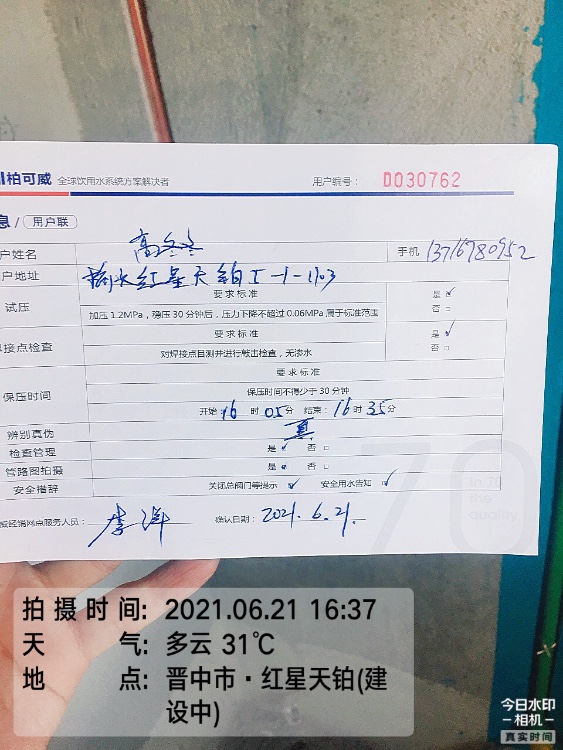 柏可威 全球饮用水系统方案解决者 用户编号: D030762
息/ 用户联
户姓名 高冬冬 手机 13716780952
户地址 红星天铂I-1-1103
试压 要求标准 是 ✓
加压1.2MPa,稳压30分钟后,压力下降不超过0.06MPa属于标准范围 否
接点检查 要求标准 是 ✓
对焊接点目测并进行敲击检查,无渗水 否
保压时间 要求标准
保压时间不得少于30分钟
开始: 16时05分 结束: 16时35分
辨别真伪 真
检查管理 是 ✓ 否
管路图拍摄 是 ✓ 否
安全措辞 关闭总阀门等提示 ✓ 安全用水告知 ✓
威经销网点服务人员: 李洋 确认日期: 2021.6.21.
70
in 70
the
quality
拍摄时间: 2021.06.21 16:37
天气: 多云 31℃
地点: 晋中市·红星天铂(建
设中)
今日水印
-相机-
真实时间